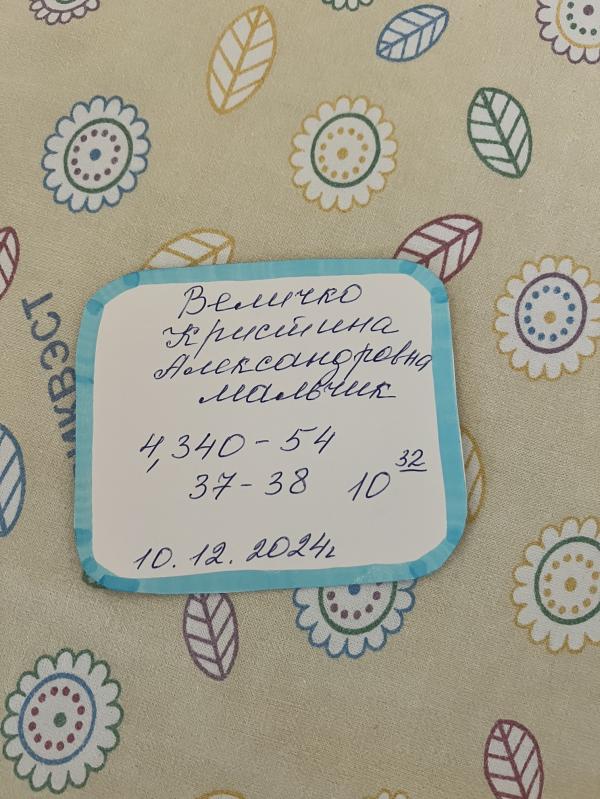 Величко
Кристина
Александровна
мальчик
4,340 - 54
37 - 38 10 32
10.12.2024г